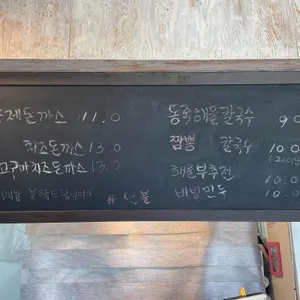 제돈까스 11.0
치즈돈까스 13.0
고구마치즈돈까스 13.0
부탁드립니다
# 선불
동죽해물칼국수 90
짬뽕 칼국수 100
해물부추전 10.0
비빔만두 10.0